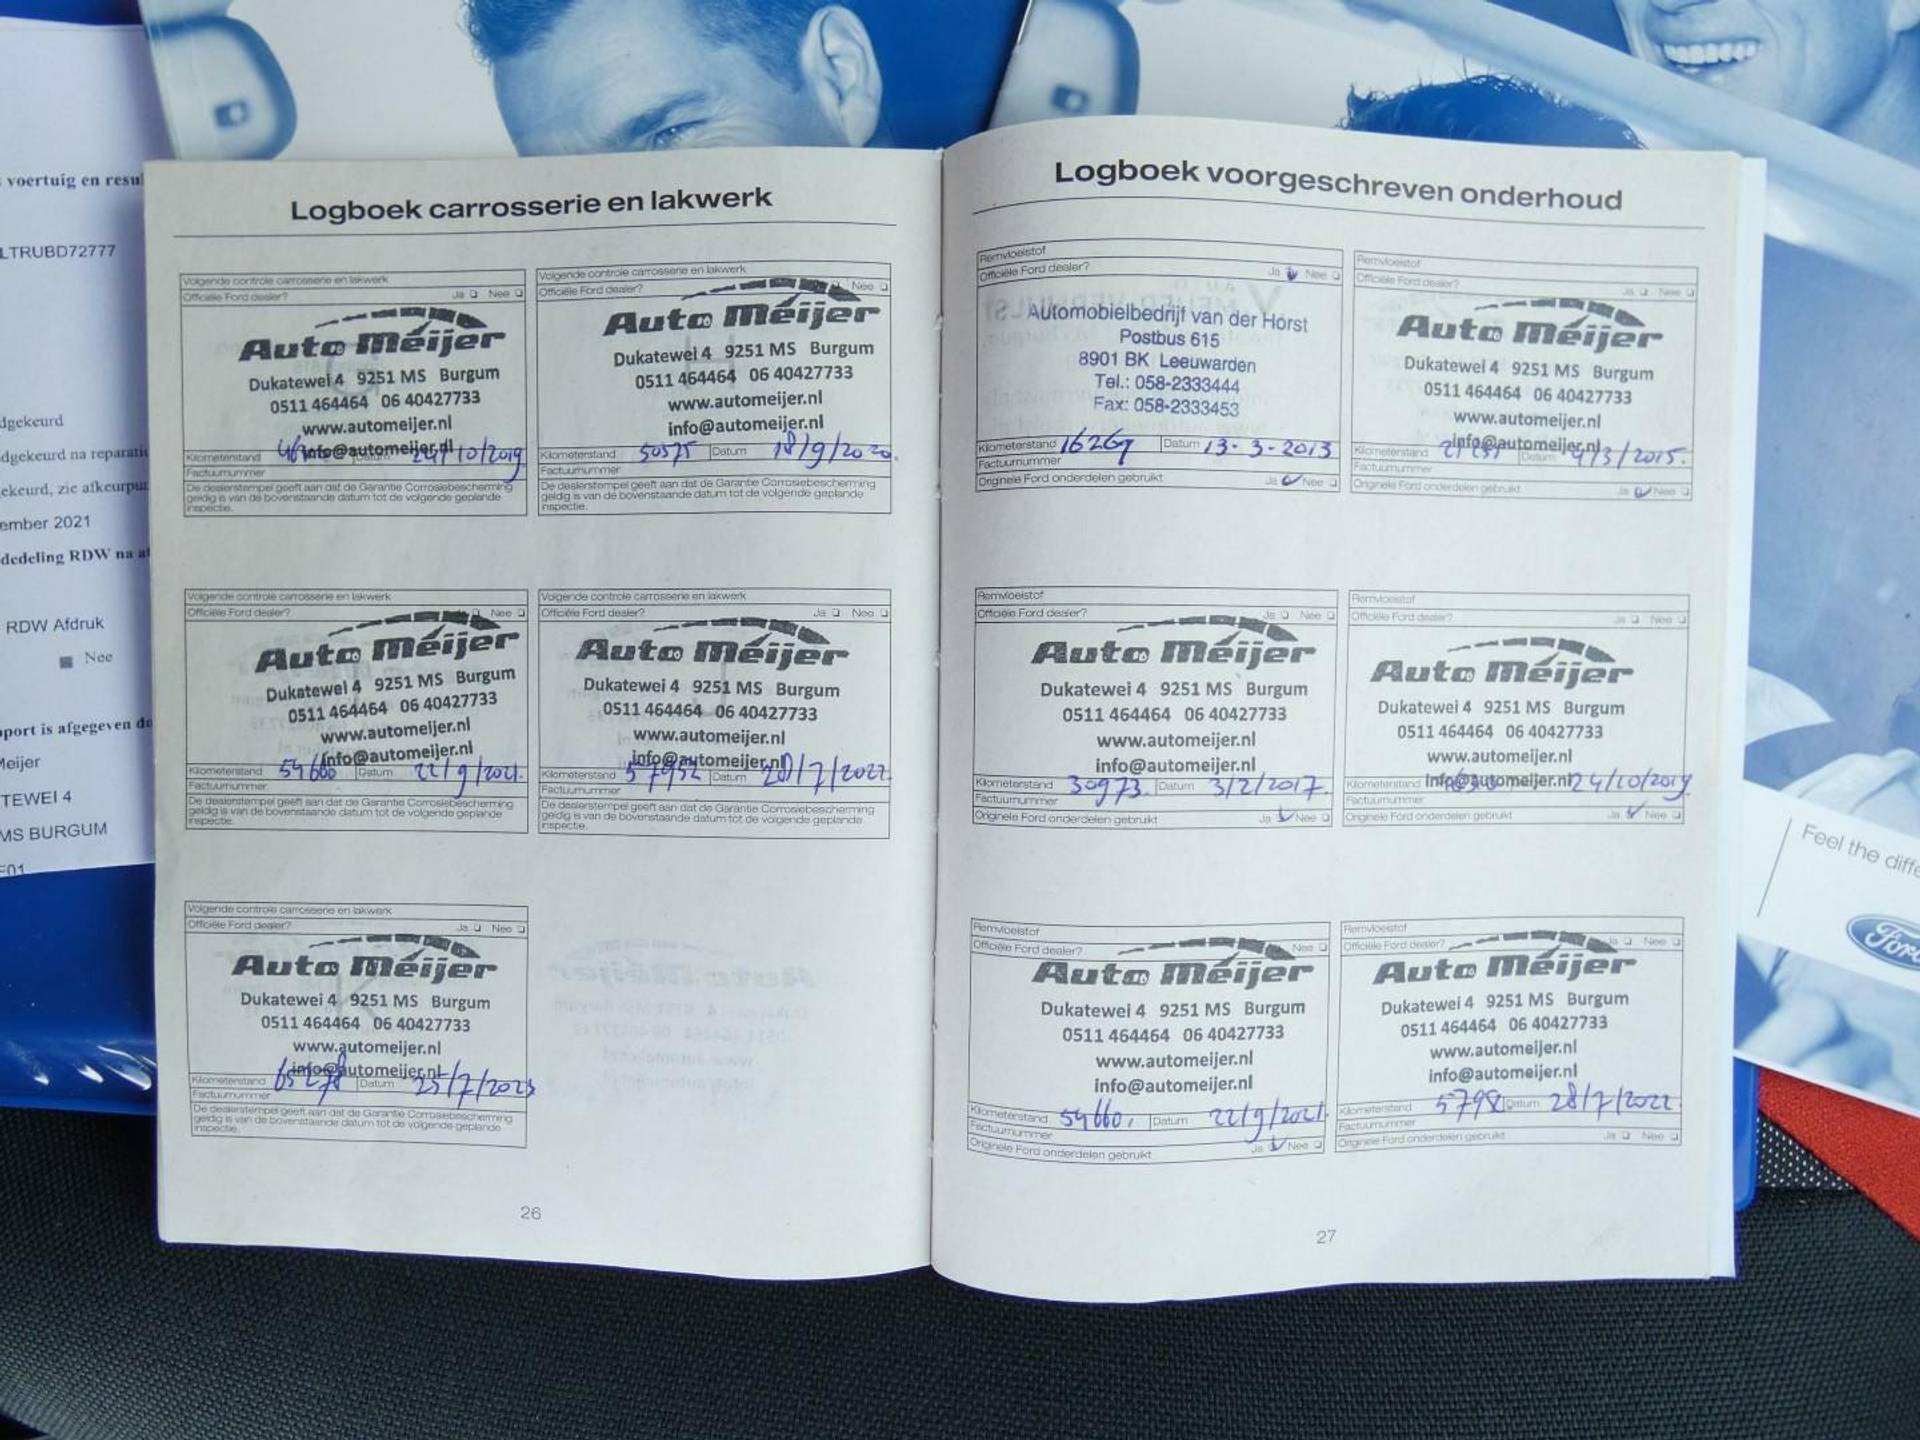 voertuig en resu
LTRUBD72777
dgekeurd
dgekeurd na reparatie
ekeurd, zie afkeurpu
ember 2021
dedeling RDW na a
RDW Afdruk
Nee
port is afgegeven do
eijer
TEWEI 4
MS BURGUM
Logboek carrosserie en lakwerk
Volgende controle carrosserie en lakwerk
Officiële Ford dealer? Ja Nee
Auto Meijer
Dukatewei 4 9251 MS Burgum
0511 464464 06 40427733
www.automeijer.nl
info@automeijer.nl
Kilometerstand Datum 24/10/2019
Factuurnummer
De dealerstempel geeft aan dat de Garantie Corrosiebescherming
geldig is van de bovenstaande datum tot de volgende geplande
inspectie.
Volgende controle carrosserie en lakwerk
Officiële Ford dealer? Nee
Auto Meijer
Dukatewei 4 9251 MS Burgum
0511 464464 06 40427733
www.automeijer.nl
info@automeijer.nl
Kilometerstand 50575 Datum 18/9/2020.
Factuurnummer
De dealerstempel geeft aan dat de Garantie Corrosiebescherming
geldig is van de bovenstaande datum tot de volgende geplande
inspectie.
Volgende controle carrosserie en lakwerk
Officiële Ford dealer? Nee
Auto Meijer
Dukatewei 4 9251 MS Burgum
0511 464464 06 40427733
www.automeijer.nl
info@automeijer.nl
Kilometerstand 54660 Datum 22/9/2021.
Factuurnummer
De dealerstempel geeft aan dat de Garantie Corrosiebescherming
geldig is van de bovenstaande datum tot de volgende geplande
inspectie.
Volgende controle carrosserie en lakwerk
Officiële Ford dealer? Ja Nee
Auto Meijer
Dukatewei 4 9251 MS Burgum
0511 464464 06 40427733
www.automeijer.nl
info@automeijer.nl
Kilometerstand 57952 Datum 28/7/2022
Factuurnummer
De dealerstempel geeft aan dat de Garantie Corrosiebescherming
geldig is van de bovenstaande datum tot de volgende geplande
inspectie.
Volgende controle carrosserie en lakwerk
Officiële Ford dealer? Ja Nee
Auto Meijer
Dukatewei 4 9251 MS Burgum
0511 464464 06 40427733
www.automeijer.nl
info@automeijer.nl
Kilometerstand 65278 Datum 25/7/2023
Factuurnummer
De dealerstempel geeft aan dat de Garantie Corrosiebescherming
geldig is van de bovenstaande datum tot de volgende geplande
inspectie.
26
Logboek voorgeschreven onderhoud
Remvloeistof
Officiële Ford dealer? Ja Nee
Automobielbedrijf van der Horst
Postbus 615
8901 BK Leeuwarden
Tel.: 058-2333444
Fax: 058-2333453
Kilometerstand 16267 Datum 13-3-2013
Factuurnummer
Originele Ford onderdelen gebruikt Ja Nee
Remvloeistof
Officiële Ford dealer? Ja Nee
Auto Meijer
Dukatewei 4 9251 MS Burgum
0511 464464 06 40427733
www.automeijer.nl
info@automeijer.nl
Kilometerstand Datum 4/3/2015.
Factuurnummer
Originele Ford onderdelen gebruikt Ja Nee
Remvloeistof
Officiële Ford dealer? Ja Nee
Auto Meijer
Dukatewei 4 9251 MS Burgum
0511 464464 06 40427733
www.automeijer.nl
info@automeijer.nl
Kilometerstand 30973. Datum 3/2/2017.
Factuurnummer
Originele Ford onderdelen gebruikt Ja Nee
Remvloeistof
Officiële Ford dealer? Ja Nee
Auto Meijer
Dukatewei 4 9251 MS Burgum
0511 464464 06 40427733
www.automeijer.nl
info@automeijer.nl
Kilometerstand 24/10/2019.
Factuurnummer
Originele Ford onderdelen gebruikt Ja Nee
Remvloeistof
Officiële Ford dealer? Nee
Auto Meijer
Dukatewei 4 9251 MS Burgum
0511 464464 06 40427733
www.automeijer.nl
info@automeijer.nl
Kilometerstand 54660. Datum 22/9/2021.
Factuurnummer
Originele Ford onderdelen gebruikt Ja Nee
Remvloeistof
Officiële Ford dealer? Ja Nee
Auto Meijer
Dukatewei 4 9251 MS Burgum
0511 464464 06 40427733
www.automeijer.nl
info@automeijer.nl
Kilometerstand Datum 28/7/2022
Factuurnummer
Originele Ford onderdelen gebruikt Ja Nee
27
Feel the diffe
Ford